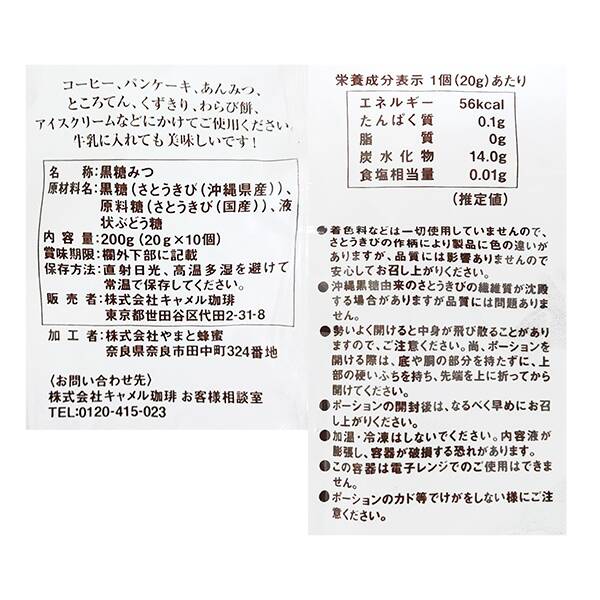 コーヒー、パンケーキ、あんみつ、
ところてん、くずきり、わらび餅、
アイスクリームなどにかけてご使用ください
牛乳に入れても美味しいです!
名 称:黒糖みつ
原材料名:黒糖(さとうきび(沖縄県産))、
原料糖(さとうきび(国産))、液
状ぶどう糖
内 容 量:200g(20g×10個)
賞味期限:欄外下部に記載
保存方法:直射日光、高温多湿を避けて
常温で保存してください。
販 売 者:株式会社キャメル珈琲
東京都世田谷区代田2-31-8
加 工 者:株式会社やまと蜂蜜
奈良県奈良市田中町324番地
〈お問い合わせ先〉
株式会社キャメル珈琲 お客様相談室
TEL:0120-415-023
栄養成分表示 1個(20g)あたり
エネルギー 56kcal
たんぱく質 0.1g
脂 質 0g
炭水化物 14.0g
食塩相当量 0.01g
(推定値)
●着色料などは一切使用していませんので、
さとうきびの作柄により製品に色の違いが
ありますが、品質には影響ありませんので
安心してお召し上がりください。
●沖縄黒糖由来のさとうきびの繊維質が沈殿
する場合がありますが品質には問題ありま
せん。
●勢いよく開けると中身が飛び散ることがあり
ますので、ご注意ください。尚、ポーションを
開ける際は、底や胴の部分を持たずに、上
部の硬いふちを持ち、先端を上に折ってから
開けてください。
●ポーションの開封後は、なるべく早めにお召
し上がりください。
●加温・冷凍はしないでください。内容液が
膨張し、容器が破損する恐れがあります。
●この容器は電子レンジでのご使用はできま
せん。
●ポーションのカド等でけがをしない様にご注
意ください。